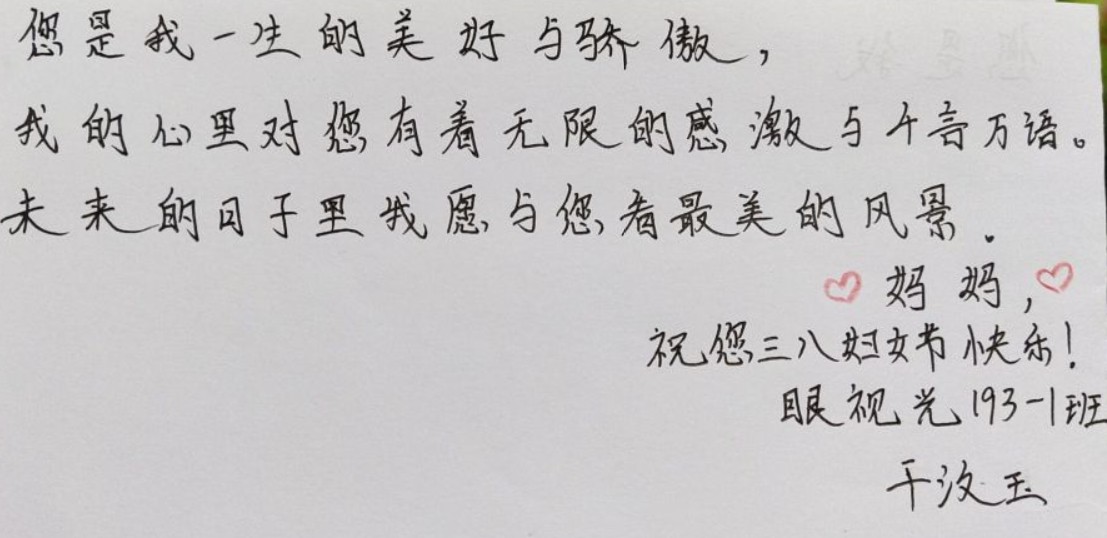 您是我一生的美好与骄傲，
我的心里对您有着无限的感激与千言万语。
未来的日子里我愿与您看最美的风景.
妈妈，
祝您三八妇女节快乐！
眼视光193-1班
干汝玉